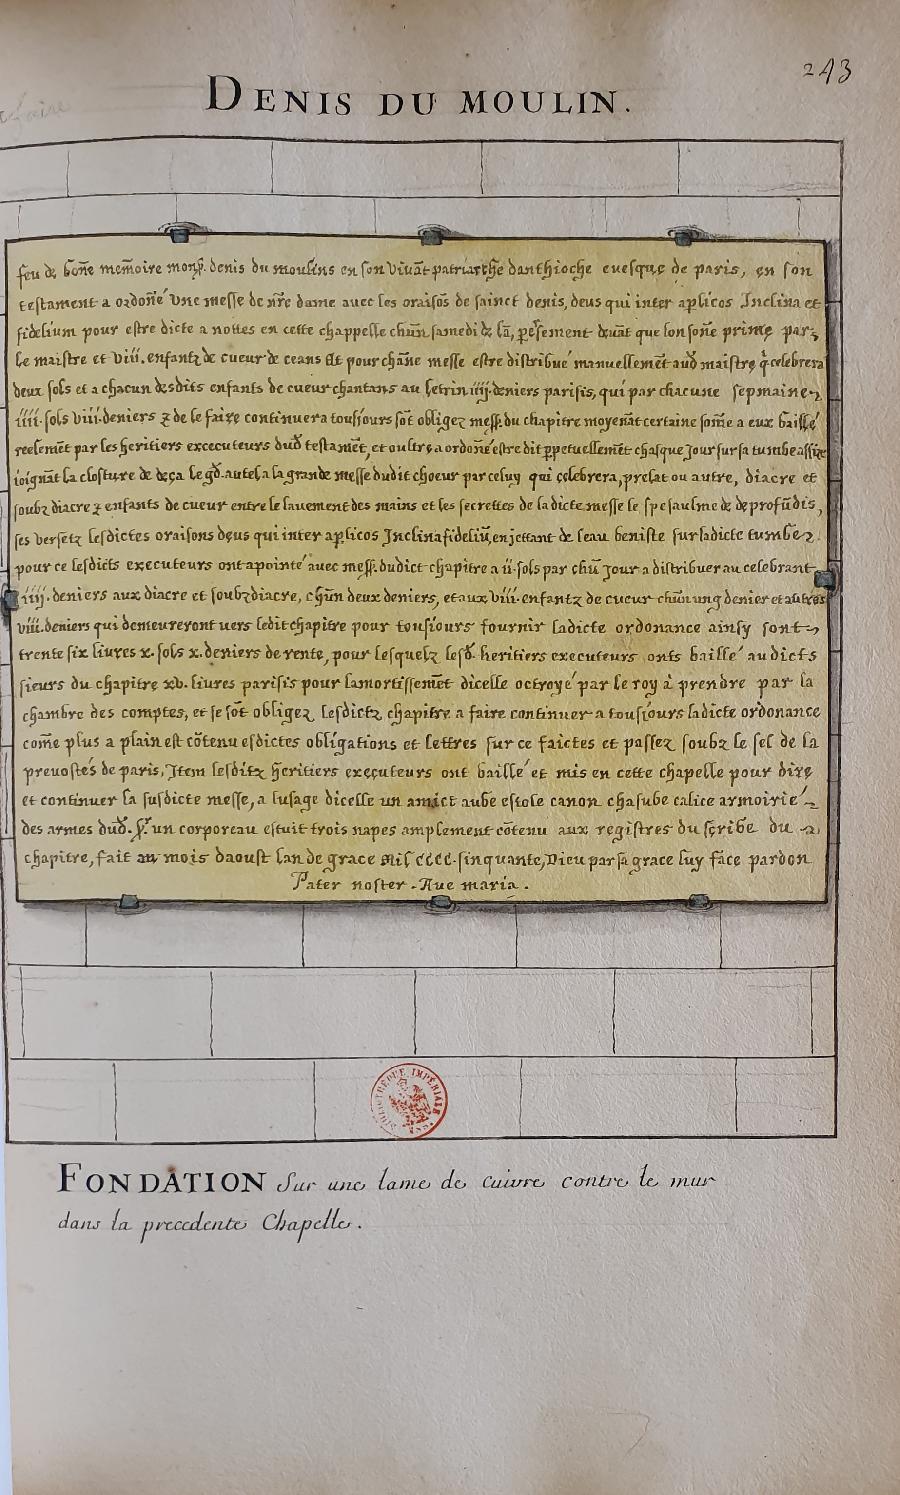 243
DENIS DU MOULIN.
feu de bon̄e mem̄oire monsr. denis du moulins en son viuāt patriarche danthioche euesque de paris, en son
testament a ordon̄é vne messe de nr̄e dame auec les oraisōs de sainct denis, deus qui inter ap̄licos Inclina et
fidelium pour estre dicte a nottes en cette chappelle chūn samedi de lā, p̄esement deuāt que lon son̄e prime par
le maistre et viii. enfantz de cueur de ceans et pour chān̄e messe estre distribué manuellemēt aud maistre q̄ celebrera
deux sols et a chacun desdits enfants de cueur chantans au letrin iiij. deniers parisis, qui par chacune sepmaine
iiii. sols viii. deniers z de le faire continuera tousiours sōt obligez mess. du chapitre moyenāt certaine som̄e a eux baillé
reelemēt par les heritiers excecuteurs dud testamēt, et oultre a ordon̄é estre dit p̄petuellemēt chasque Jour sur sa tumbe assize
ioignāt la closture de deça le gd. autel a la grande messe dudit choeur par celuy qui celebrera, prelat ou autre, diacre et
soubz diacre z enfants de cueur entre le lauement des mains et les secrettes de ladicte messe le spesaulme de de profūdis,
ses versetz lesdictes oraisons deus qui inter ap̄licos Inclina fideliū, en jettant de leau beniste sur ladicte tumbe z
pour ce lesdicts executeurs ont apointé auec mess. dudict chapitre a ii. sols par chūn Jour a distribuer au celebrant
iiij. deniers aux diacre et soubz diacre, chūn deux deniers, et aux viii. enfantz de cueur chūn ung denier et autres
viii. deniers qui demeureront uers ledit chapitre pour tousiours fournir ladicte ordonance ainsy sont
trente six liures x. sols x. deniers de rente, pour lesquelz lesd. heritiers executeurs onts baillé audicts
sieurs du chapitre xv. liures parisis pour lamortissemēt dicelle octroyé par le roy à prendre par la
chambre des comptes, et se sōt obligez lesdictz chapitre a faire continuer a tousiours ladicte ordonance
com̄e plus a plain est cōtenu esdictes obligations et lettres sur ce faictes et passez soubz le sel de la
preuostés de paris, Item lesditz heritiers executeurs ont baillé et mis en cette chapelle pour dire
et continuer la susdicte messe, a lusage dicelle un amict aube estole canon chasube calice armoirié
des armes dud. sr. un corporeau estuit trois napes amplement cōtenu aux registres du scribe du
chapitre, fait au mois daoust lan de grace mil cccc. sinquante, Dieu par sa grace luy face pardon
Pater noster. Aue maria.
BIBLIOTHÈQUE IMPÉRIALE MSS.
FONDATION Sur une lame de cuivre contre le mur
dans la precedente Chapelle.